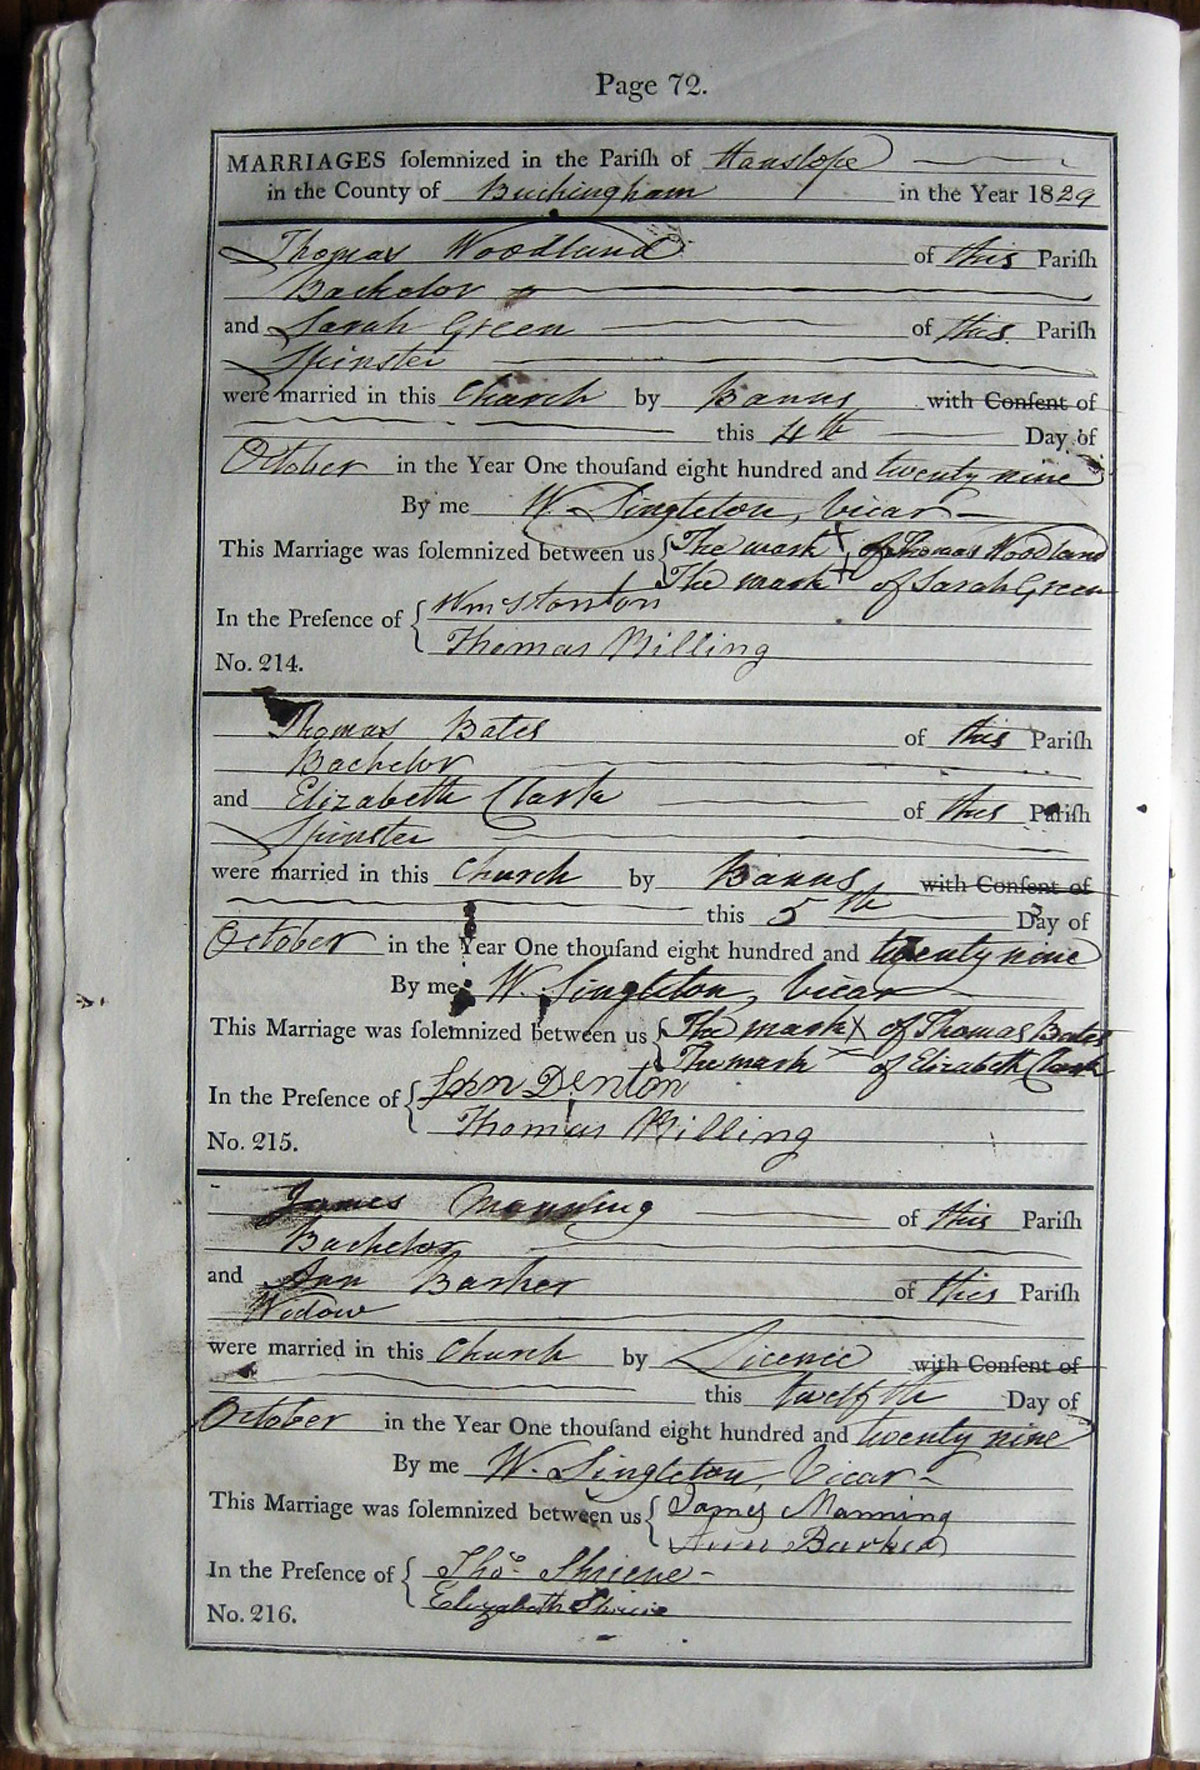 Page 72.
MARRIAGES ſolemnized in the Pariſh of Hanslope
in the County of Buckingham in the Year 1829
Thomas Woodland of this Pariſh
Bachelor
and Sarah Green of this Pariſh
Spinster
were married in this Church by Banns with Conſent of
this 4th Day of
October in the Year One thouſand eight hundred and twenty nine
By me W. Singleton, Vicar
This Marriage was ſolemnized between us { The mark X of Thomas Woodland
The mark + of Sarah Green
In the Preſence of { Wm Stanton
Thomas Billing
No. 214.
Thomas Bates of this Pariſh
Bachelor
and Elizabeth Clark of this Pariſh
Spinster
were married in this Church by Banns with Conſent of
this 5th Day of
October in the Year One thouſand eight hundred and twenty nine
By me W. Singleton, Vicar
This Marriage was ſolemnized between us { The mark X of Thomas Bates
The mark X of Elizabeth Clark
In the Preſence of { John Denton
Thomas Billing
No. 215.
James Manning of this Pariſh
Bachelor
and Ann Barker of this Pariſh
Widow
were married in this Church by Licence with Conſent of
this twelfth Day of
October in the Year One thouſand eight hundred and twenty nine
By me W. Singleton, Vicar
This Marriage was ſolemnized between us { James Manning
Ann Barker
In the Preſence of { Thos. Shriene
Elizabeth
No. 216.